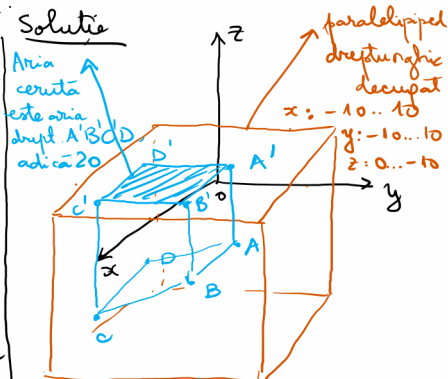 Solutie
Aria
cerută
este aria
drept. A'B'C'D'
adică 20
paralelipiped
dreptunghic
decupat
x: -10..10
y: -10...10
z: 0...-10
z
D'
A'
C'
B'
O
y
x
D
A
B
C